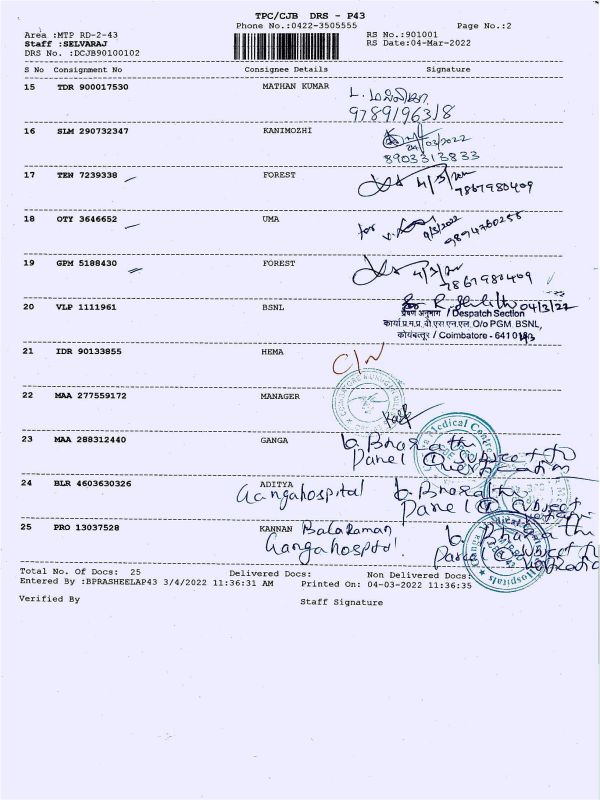 TPC/CJB DRS - P43
Phone No.:0422-3505555
Page No.:2
Area :MTP RD-2-43
Staff :SELVARAJ
DRS No. :DCJB90100102
RS No.:901001
RS Date:04-Mar-2022
S No Consignment No Consignee Details Signature
15 TDR 900017530 MATHAN KUMAR
9789196318
16 SLM 290732347 KANIMOZHI
24/03/2022
8903313833
17 TEN 7239338 FOREST
4/3/22
7867980409
18 OTY 3646652 UMA
for
4/3/2022
9894760258
19 GPM 5188430 FOREST
4/3/22
7867980409
20 VLP 1111961 BSNL
04/3/22
प्रेषण अनुभाग / Despatch Section
कार्या.प्र.म.प्र. बी.एस.एन.एल. O/o PGM BSNL,
कोयंबत्तूर / Coimbatore - 641
21 IDR 90133855 HEMA
C/N
22 MAA 277559172 MANAGER
23 MAA 288312440 GANGA
b. Bharathi
Panel @ Subject to
24 BLR 4603630326 ADITYA
Gangahospital
b. Bharathi
Panel @ Subject
25 PRO 13037528 KANNAN Balaraman
Gangahospital.
b. Bharathi
Panel @ Subject to
Total No. Of Docs: 25 Delivered Docs: Non Delivered Docs:
Entered By :BPRASHEELAP43 3/4/2022 11:36:31 AM Printed On: 04-03-2022 11:36:35
Verified By Staff Signature